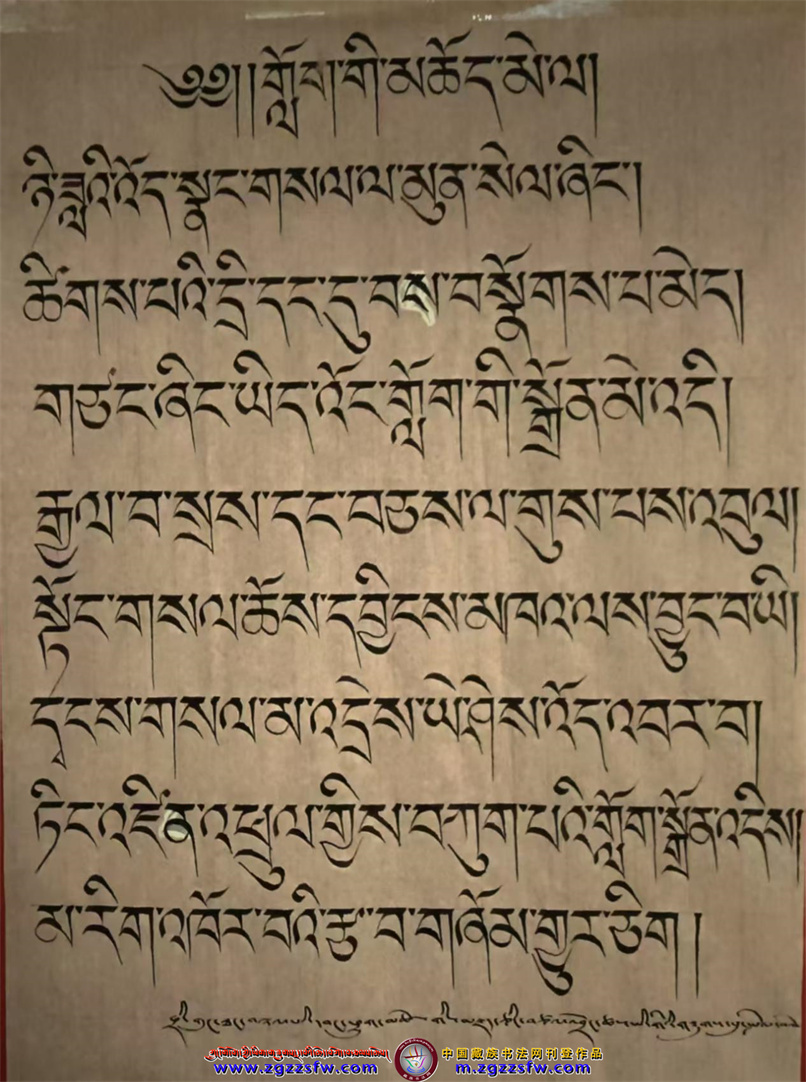 ༄༅།།གློག་གི་མཆོད་མེ་ལ།
ཉི་ཟླའི་འོད་སྣང་གསལ་ལ་མུན་སེལ་ཞིང་།
ཚིགས་པའི་དྲི་དང་དུ་བས་བསྣོགས་པ་མེད།
གཙང་ཞིང་ཡིད་འོང་གློག་གི་སྒྲོན་མེ་འདི།
རྒྱལ་བ་སྲས་དང་བཅས་ལ་གུས་པས་འབུལ།
སྟོང་གསལ་ཆོས་དབྱིངས་མཁའ་ལས་བྱུང་བ་ཡི།
དྭངས་གསལ་མ་འདྲེས་ཡེ་ཤེས་འོད་འབར་བ།
ཏིང་འཛིན་འཕྲུལ་གྱིས་བཀུག་པའི་གློག་སྒྲོན་འདིས།།
མ་རིག་འཁོར་བའི་རྩ་བ་གཞོམ་གྱུར་ཅིག །
中国藏族书法网刊登作品
www.zgzzsfw.com
m.zgzzsfw.com